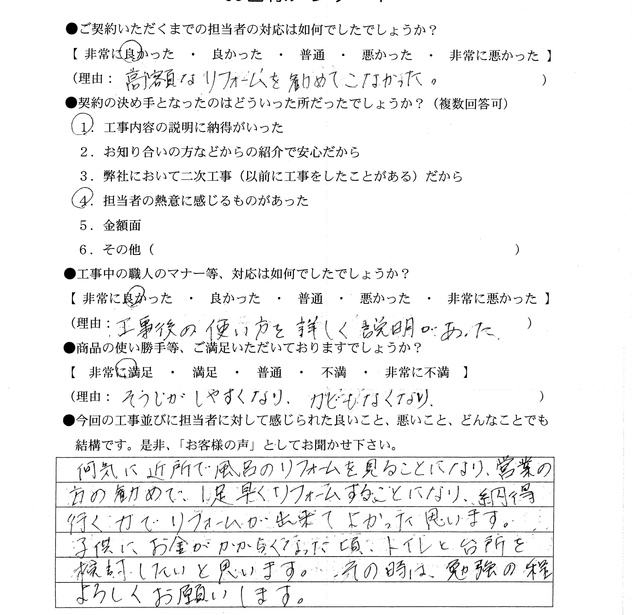 ●ご契約いただくまでの担当者の対応は如何でしたでしょうか？
【 非常に良かった ・ 良かった ・ 普通 ・ 悪かった ・ 非常に悪かった 】
（理由：高額なリフォームを勧めてこなかった。 ）
●契約の決め手となったのはどういった所だったでしょうか？（複数回答可）
1．工事内容の説明に納得がいった
2．お知り合いの方などからの紹介で安心だから
3．弊社において二次工事（以前に工事をしたことがある）だから
4．担当者の熱意に感じるものがあった
5．金額面
6．その他（ ）
●工事中の職人のマナー等、対応は如何でしたでしょうか？
【 非常に良かった ・ 良かった ・ 普通 ・ 悪かった ・ 非常に悪かった 】
（理由：工事後の使い方を詳しく説明があった ）
●商品の使い勝手等、ご満足いただいておりますでしょうか？
【 非常に満足 ・ 満足 ・ 普通 ・ 不満 ・ 非常に不満 】
（理由：そうじがしやすくなり、カビもなくなり、 ）
●今回の工事並びに担当者に対して感じられた良いこと、悪いこと、どんなことでも
結構です。是非、「お客様の声」としてお聞かせ下さい。
何気に近所で風呂のリフォームを見ることになり、営業の
方の勧めで、1足早くリフォームすることになり、納得
行く力でリフォームが出来てよかった思います。
子供にお金がかからくなった頃、トイレと台所を
検討したいと思います。その時は、勉強の程
よろしくお願いします。